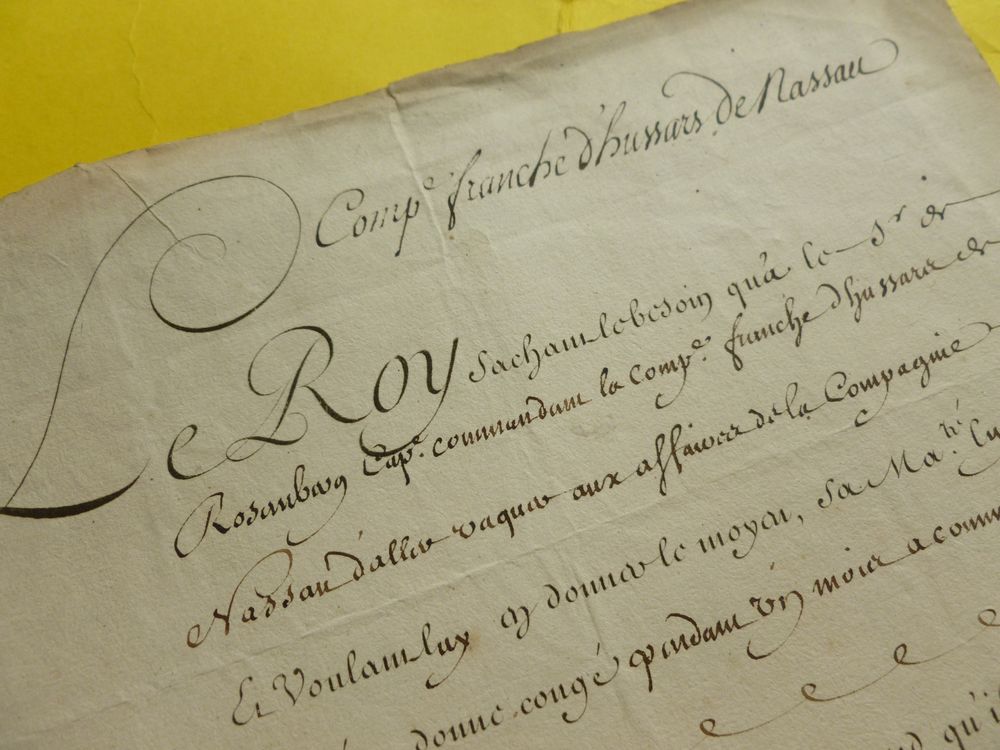 Comp.e franche d'hussars de Nassau
Le Roy sachant le besoin qu'a le S.r de
Rosenberg Cap.e commandant la comp.e franche d'hussards de
Nassau d'aller vaquer aux affaires de la Compagnie
Et Voulant luy en donner le moyen, Sa Ma.té luy
donne congé pendant un mois a comm
qu'il